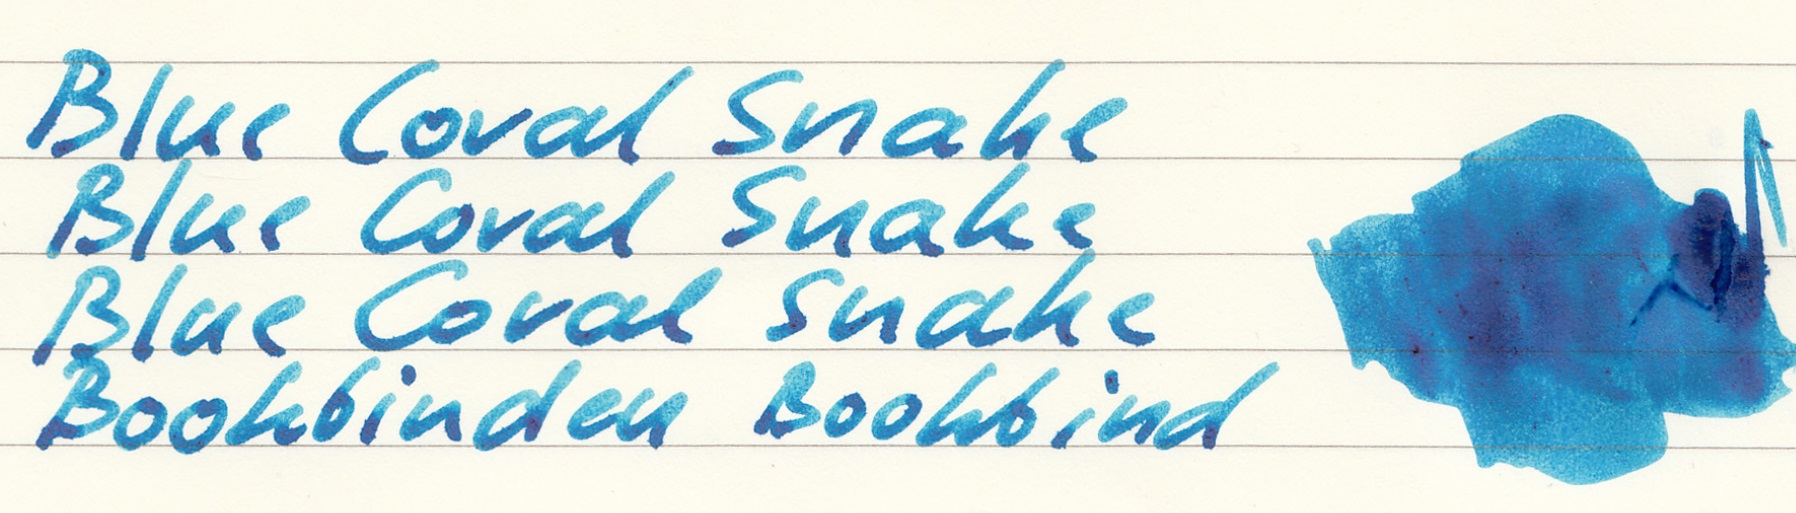 Blue Coral Snake
Blue Coral Snake
Blue Coral Snake
Bookbinden Bookbind